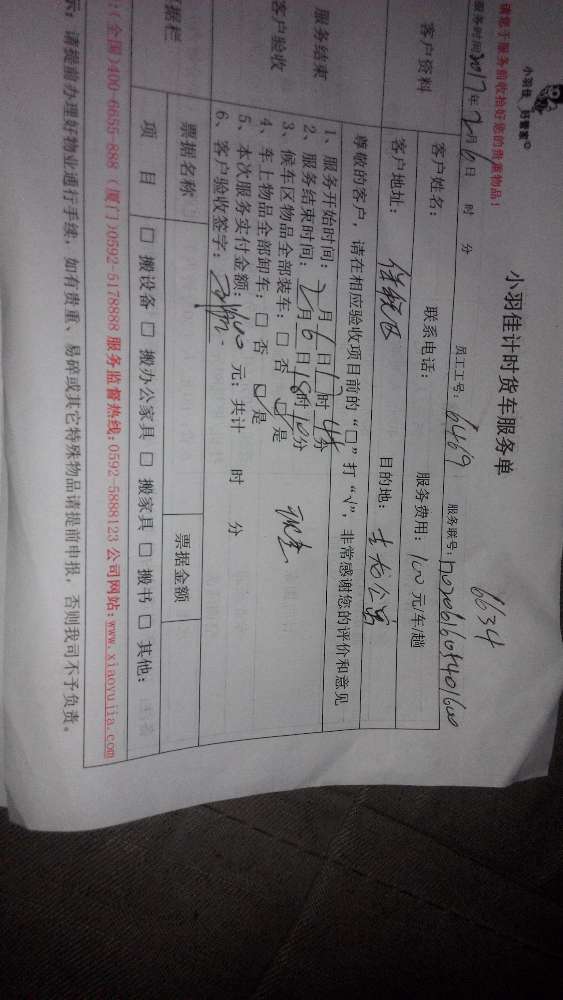 小羽佳 好管家
请您于服务前收拾好您的贵重物品!
小羽佳计时货车服务单
6634
服务时间2017年2月6日 时 分 员工工号: 6469 服务联号:
客户资料
客户姓名: 联系电话: 服务费用: 100元/车/趟
客户地址: 保税区 目的地:
服务结束
客户验收
尊敬的客户,请在相应验收项目前的“□”打“√”,非常感谢您的评价和意见
1、服务开始时间: 2月6日17时45分
2、服务结束时间: 2月6日18时10分
3、候车区物品全部装车: □ 否 □ 是
4、车上物品全部卸车: □ 否 □ 是
5、本次服务实付金额: 元; 共计 时 分
6、客户验收签字:
票据栏
票据名称 票据金额
项 目 □ 搬设备 □ 搬办公家具 □ 搬家具 □ 搬书 □ 其他:
:(全国)400-6655-888 (厦门)0592-5178888 服务监督热线:0592-5888123 公司网站:www.xiaoyujia.com
示: 请提前办理好物业通行手续, 如有贵重、易碎或其它特殊物品请提前申报, 否则我司不予负责。